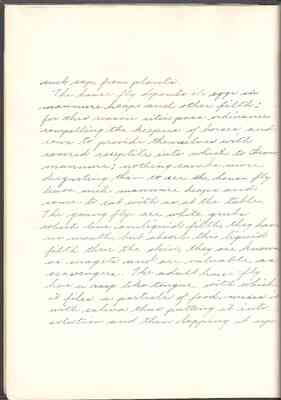 suck sap from plants.
The house fly deposits its eggs in
manure heaps and other filth;
for this reason cities pass ordinances
compelling the keepers of horses and
cows to provide themselves with
covered receptacles into which to throw
manure; nothing can be more
disgusting than to see the house fly
leave such manure heaps and
come to eat with us at the table.
The young fly are white grubs
which live in liquid filth, they have
no mouths but absorb this liquid
filth thru the skin; they are known
as magots and are valuable as
scavengers. The adult house fly
has a rasp like tongue with which
it files a particle of food, mixes it
with saliva thus putting it into
solution and then lapping it up